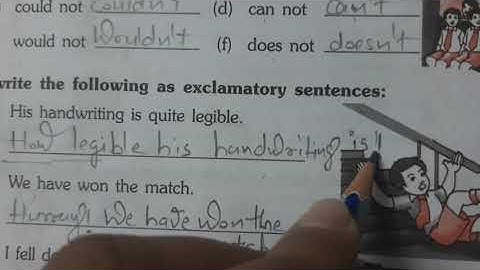 could not couldn't (d) can not can't
would not wouldn't (f) does not doesn't
write the following as exclamatory sentences:
His handwriting is quite legible.
How legible his handwriting is!
We have won the match.
Hurray! We have won the
I fell d